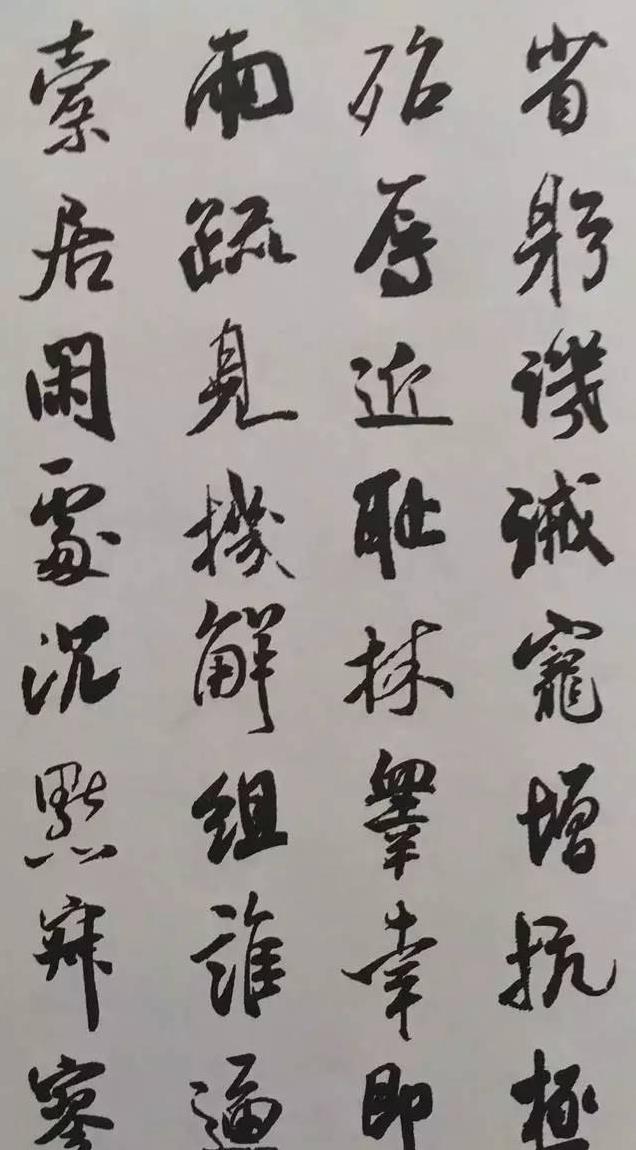 省躬譏誡寵增抗極
殆辱近耻林睾幸即
兩疏見機解組誰逼
索居閑處沉默寂寥